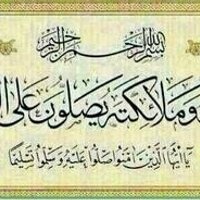 بسم الله الرحمن الرحيم
وملائكته يصلون على
يا أيها الذين آمنوا صلوا عليه وسلموا تسليما